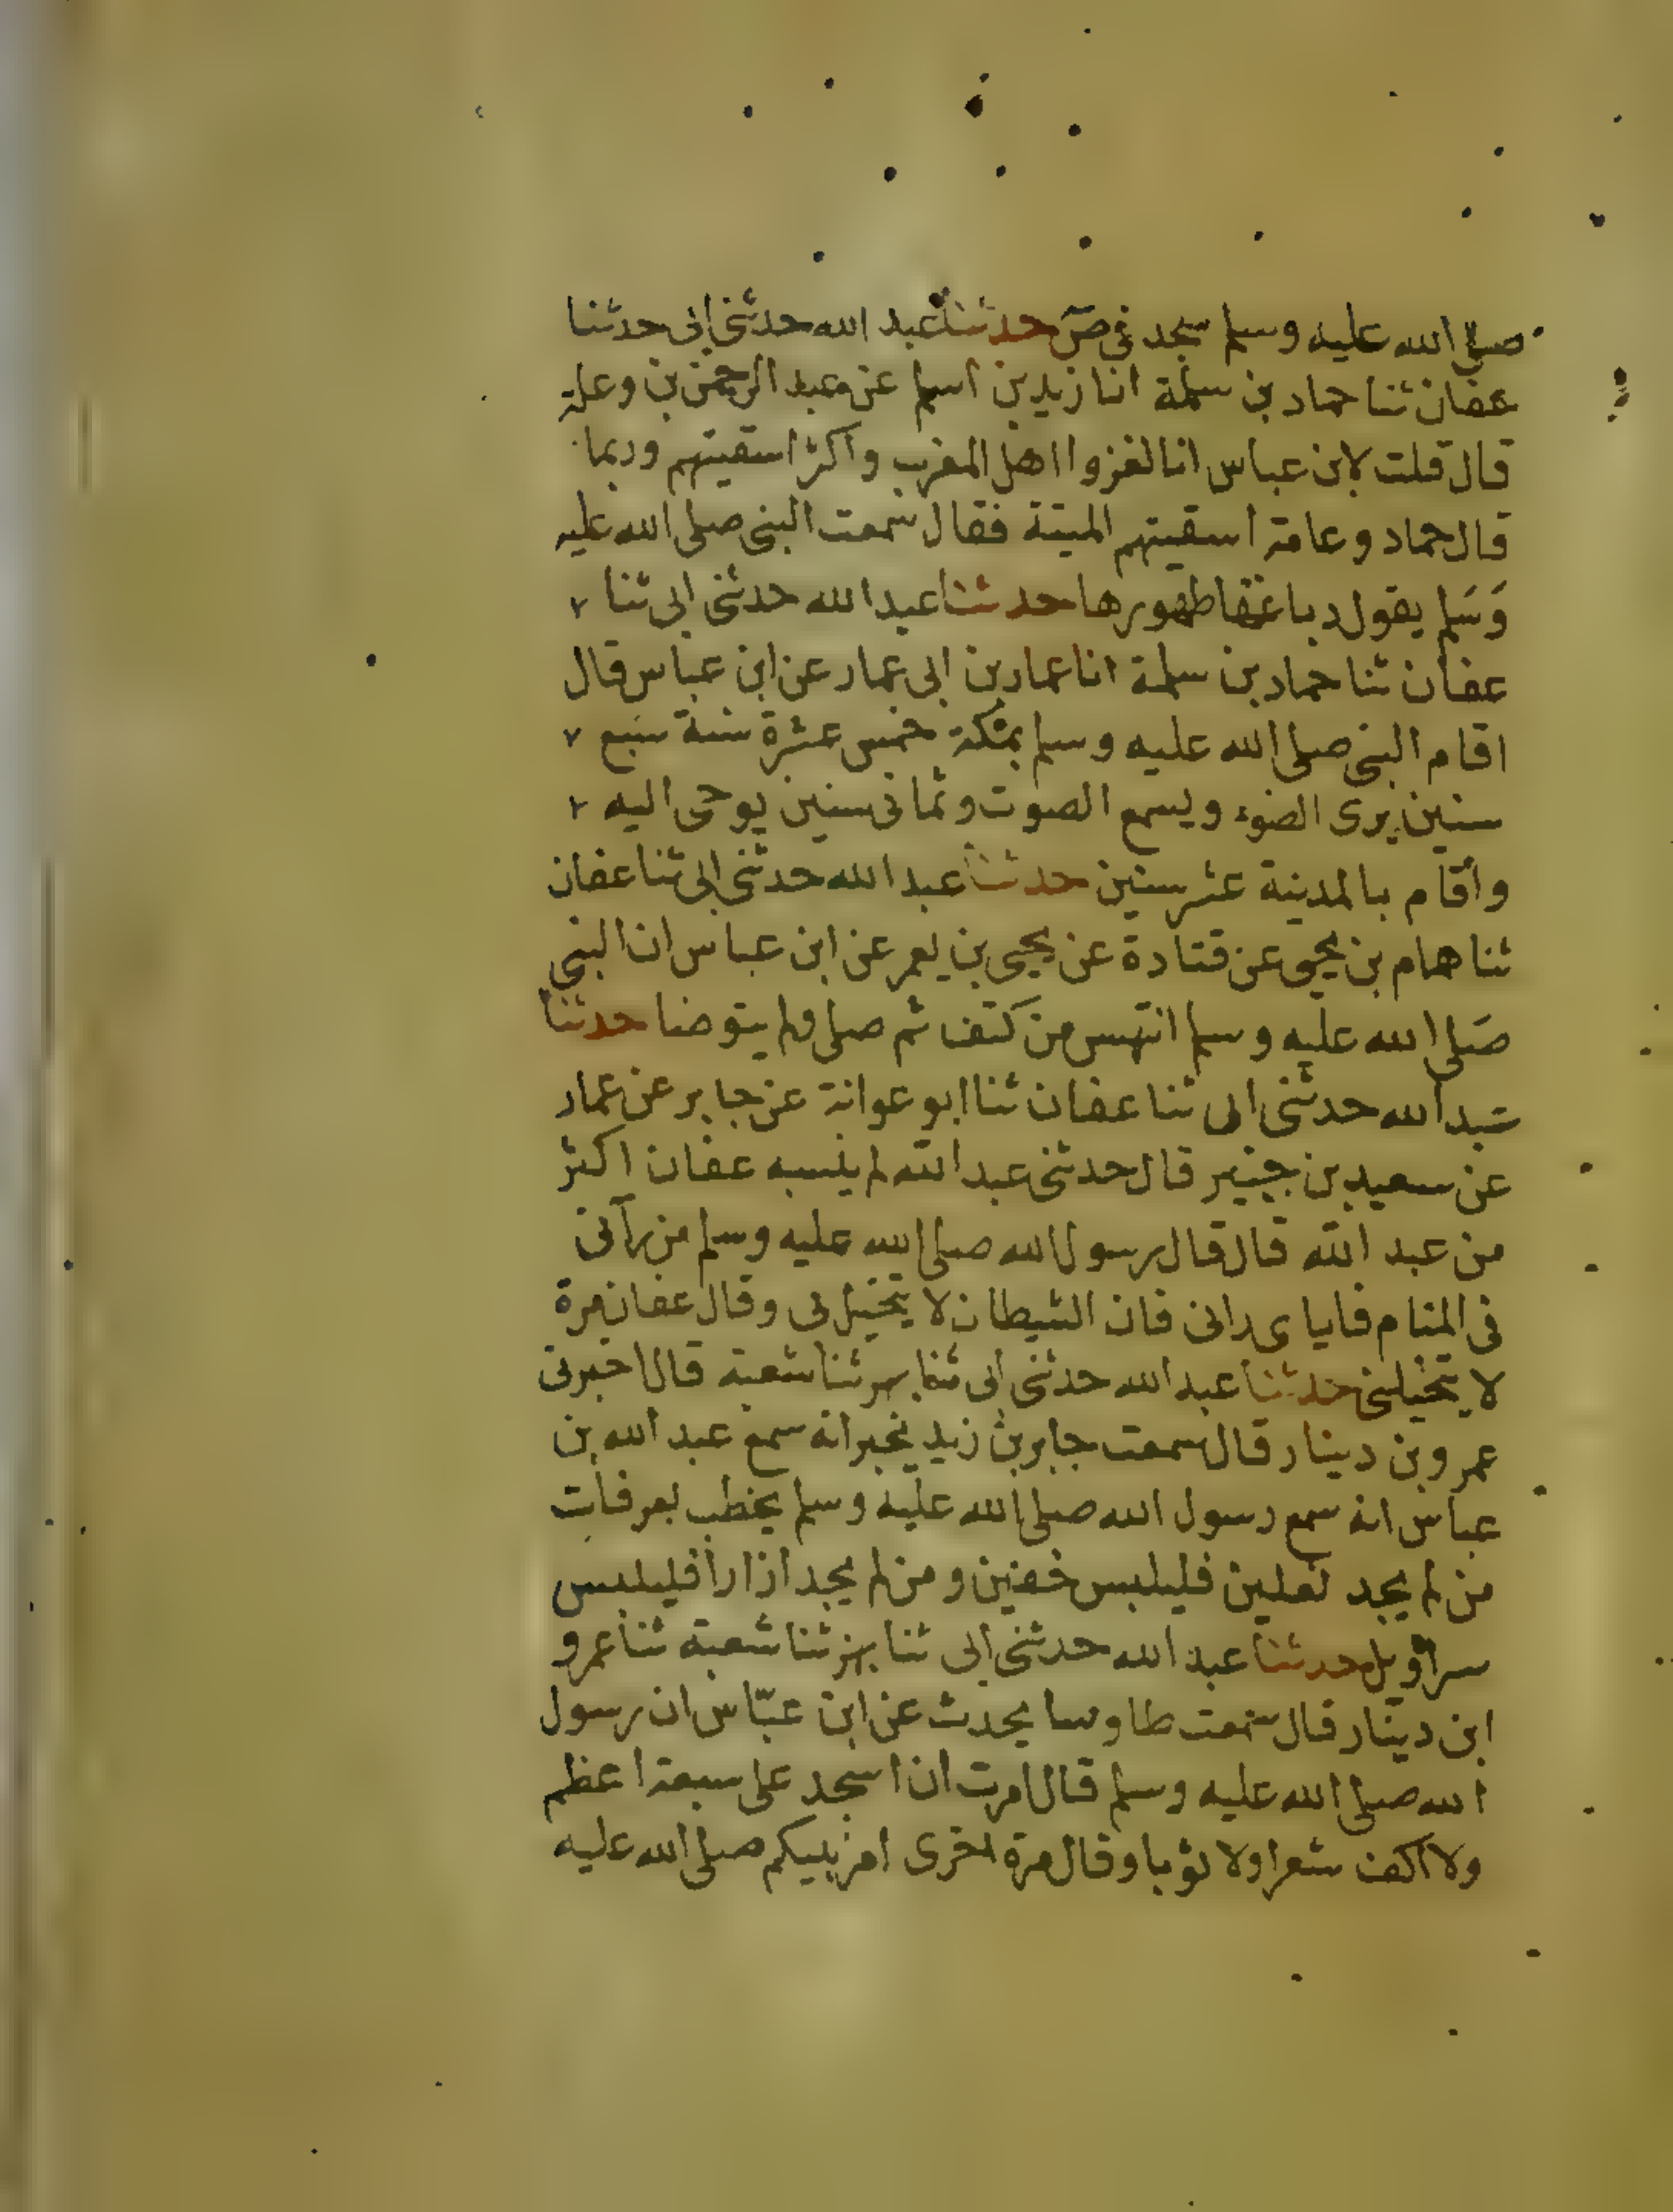 صلى الله عليه وسلم سجد في ص حدثنا عبد الله حدثني ابى حدثنا
عفان ثنا حماد بن سلمة انا زيد بن اسلم عن عبد الرحمن بن وعلة
قال قلت لابن عباس انا لغزوا اهل المغرب واكثر اسقيتهم وربما
قال حماد وعامة اسقيتهم الميتة فقال سمعت النبى صلى الله عليه
وَسَلم يقول دباغها طهورها حدثنا عبد الله حدثنى ابى ثنا
عفان ثنا حماد بن سلمة انا عمار بن ابى عمار عن ابن عباس قال
اقام النبى صلى الله عليه وسلم بمكة خمس عشرة سنة سبع
سنين يرى الضوء ويسمع الصوت وثمانى سنين يوحى اليه
وأقام بالمدينة عشر سنين حدثنا عبد الله حدثنى ابى ثنا عفان
ثنا همام بن يحيى عن قتادة عن يحيى بن يعمر عن ابن عباس ان النبى
صَلى الله عليه وسلم انتهس من كتف ثم صلى ولم يتوضا حدثنا
عبد الله حدثنى ابى ثنا عفان ثنا ابو عوانة عن جابر عن عمار
عن سعيد بن جبير قال حدثنى عبد الله لم ينسبه عفان اكثر
من عبد الله قال قال رسول الله صلى الله عليه وسلم من رآنى
فى المنام فاياى رانى فان الشيطان لا يتخيل بى وقال عفان مرة
لا يتخيلنى حدثنا عبد الله حدثنى ابى ثنا بهز ثنا شعبة قال اخبرنى
عمرو بن دينار قال سمعت جابر بن زيد يخبر انه سمع عبد الله بن
عباس انه سمع رسول الله صلى الله عليه وسلم يخطب بعرفات
من لم يجد نعلين فليلبس خفين ومن لم يجد ازارا فليلبس
سراويل حدثنا عبد الله حدثنى ابى ثنا بهز ثنا شعبة ثنا عمرو
ابن دينار قال سمعت طاوسا يحدث عن ابن عبّاس ان رسول
الله صلى الله عليه وسلم قال امرت ان اسجد على سبعة اعظم
ولا اكف شعرا ولا ثوبا وقال مرة اخرى امر نبيكم صلى الله عليه